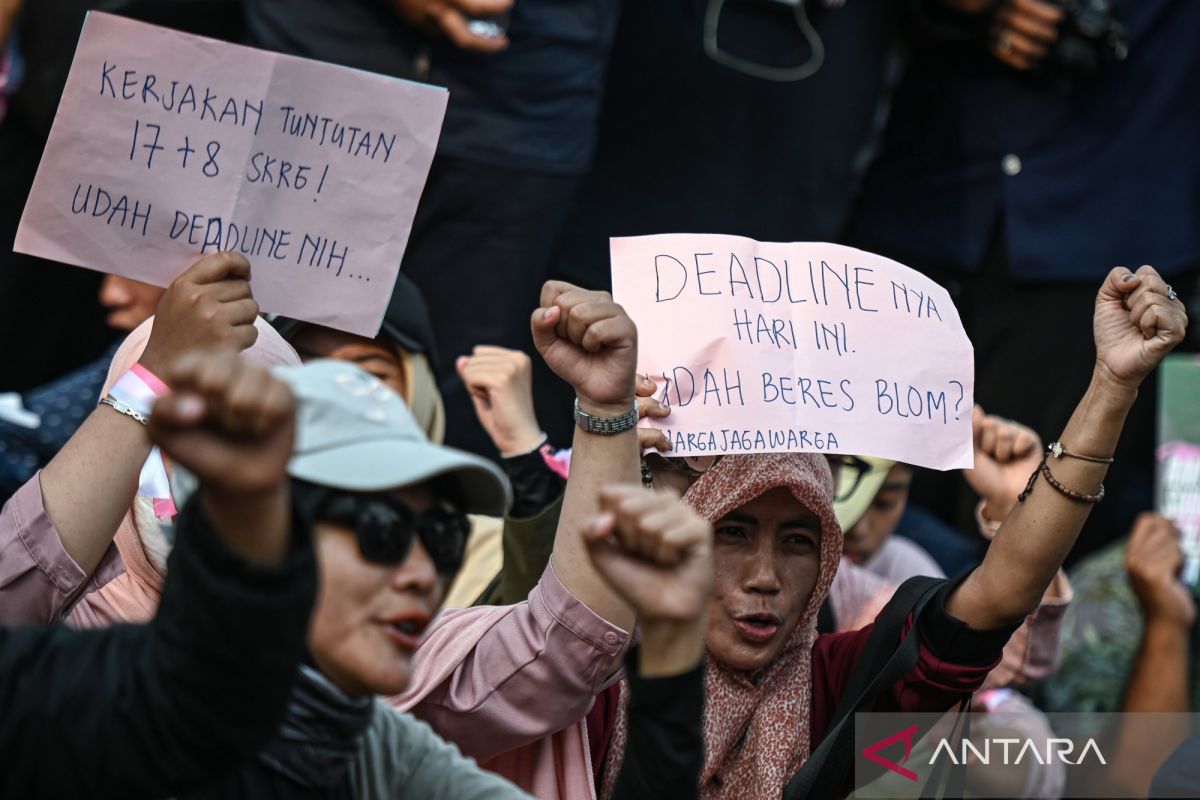 KERJAKAN TUNTUTAN
17+8 SKRG!
UDAH DEADLINE NIH...
DEADLINE NYA
HARI INI.
UDAH BERES BLOM?
WARGAJAGAWARGA
ANTARA